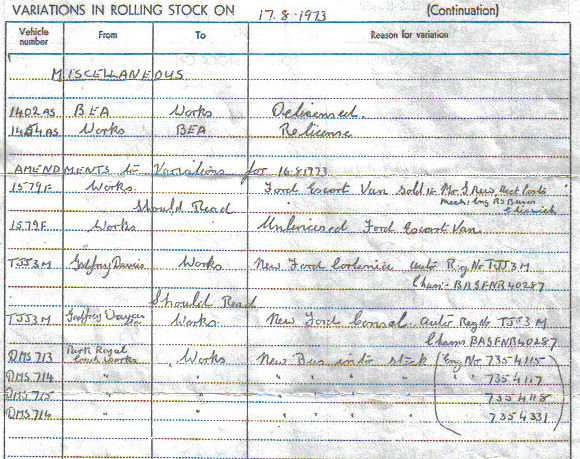 VARIATIONS IN ROLLING STOCK ON 17.8.1973 (Continuation)
Vehicle number From To Reason for variation
MISCELLANEOUS
1402AS BEA Works Delicensed
1454AS Works BEA Relicense
AMENDMENTS to Variations for 16.8.1973
1579F Works Ford Escort Van sold to Mr
Should Read Mech: Eng Chiswick
1579F Works Unlicensed Ford Escort Van.
TJJ3M Godfrey Davis Works New Ford auto Reg No TJJ3M
Chassis BASFNR40287
Should Read
TJJ3M Godfrey Davis Works New Ford Consul auto Reg No TJJ3M
Chassis BASFNR40287
DMS713 Park Royal Coach Works Works New Bus into stock (Eng No 7354115
DMS714 " " " " " " " " 7354117
DMS715 " " " " " " 7354118
DMS716 " " " " " " 7354331)